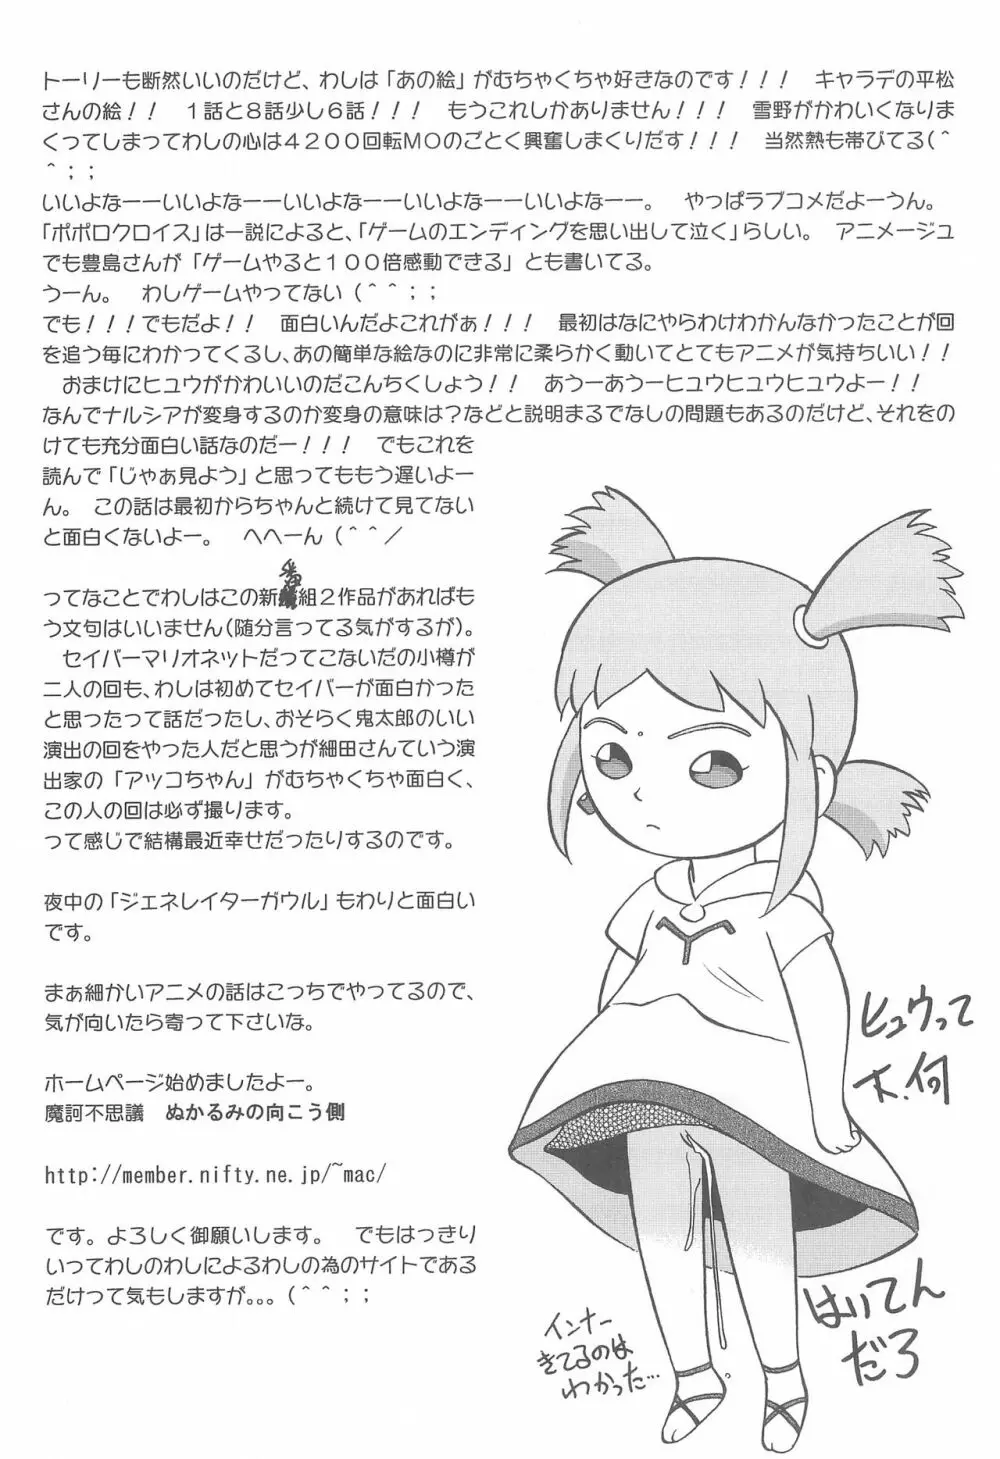 トーリーも断然いいのだけど、わしは「あの絵」がむちゃくちゃ好きなのです！！！　キャラデの平松
さんの絵！！　１話と８話少し６話！！！　もうこれしかありません！！！　雪野がかわいくなりま
くってしまってわしの心は４２００回転ＭＯのごとく興奮しまくりだす！！！　当然熱も帯びてる(＾
＾；；
いいよなーーいいよなーーいいよなーーいいよなーーいいよなーー。　やっぱラブコメだよーうん。
「ポポロクロイス」は一説によると、「ゲームのエンディングを思い出して泣く」らしい。　アニメージュ
でも豊島さんが「ゲームやると１００倍感動できる」とも書いてる。
うーん。　わしゲームやってない（＾＾；；
でも！！！でもだよ！！　面白いんだよこれがぁ！！！　最初はなにやらわけわかんなかったことが回
を追う毎にわかってくるし、あの簡単な絵なのに非常に柔らかく動いてとてもアニメが気持ちいい！！
　おまけにヒュウがかわいいのだこんちくしょう！！　あうーあうーヒュウヒュウヒュウよー！！
なんでナルシアが変身するのか変身の意味は？などと説明まるでなしの問題もあるのだけど、それをの
けても充分面白い話なのだー！！！　でもこれを
読んで「じゃぁ見よう」と思ってももう遅いよー
ん。　この話は最初からちゃんと続けて見てない
と面白くないよー。　へへーん（＾＾／
ってなことでわしはこの新番組２作品があればも
う文句はいいません（随分言ってる気がするが）。
　セイバーマリオネットだってこないだの小樽が
二人の回も、わしは初めてセイバーが面白かった
と思ったって話だったし、おそらく鬼太郎のいい
演出の回をやった人だと思うが細田さんていう演
出家の「アッコちゃん」がむちゃくちゃ面白く、
この人の回は必ず撮ります。
って感じで結構最近幸せだったりするのです。
夜中の「ジェネレイターガウル」もわりと面白い
です。
まぁ細かいアニメの話はこっちでやってるので、
気が向いたら寄って下さいな。
ホームページ始めましたよー。
魔訶不思議　ぬかるみの向こう側
http://member.nifty.ne.jp/~mac/
です。よろしく御願いします。　でもはっきり
いってわしのわしによるわしの為のサイトである
だけって気もしますが。。。（＾＾；；